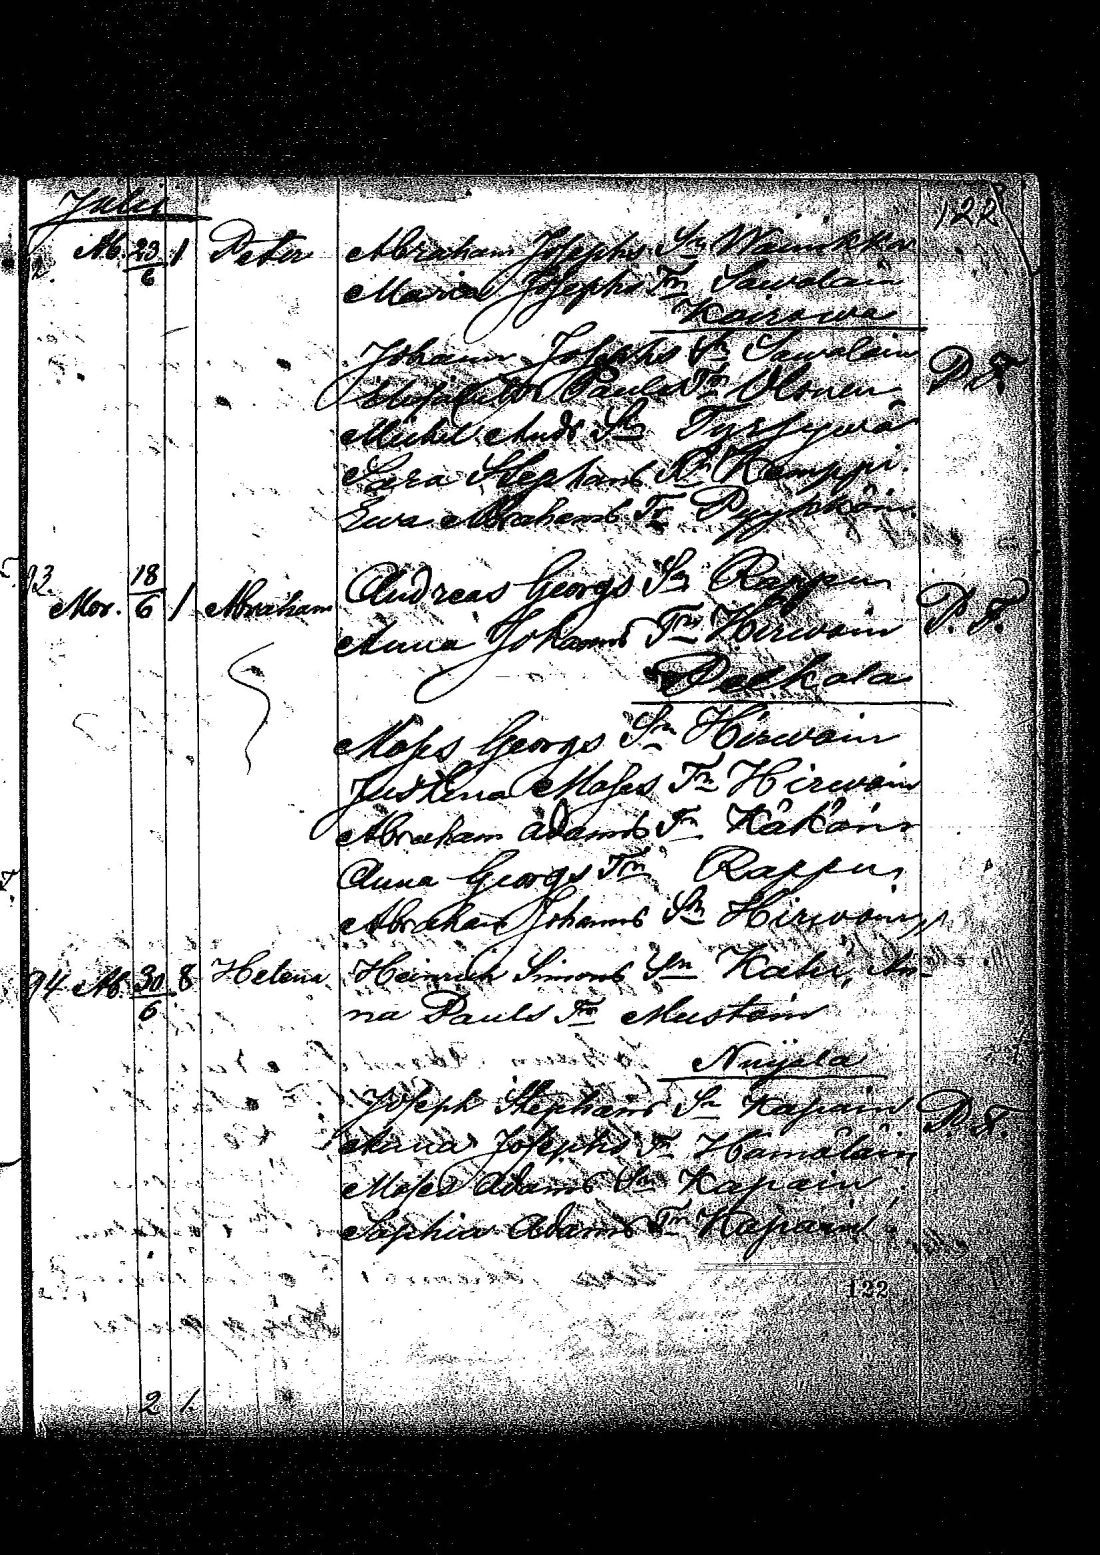 Julii 122
Ab. 23/6 1 Peter Abraham Josephs Sn Wainikka
Maria Josephs Tr Sawolain
Kairowa
Johann Josephs Sn Sawolain P. F.
Elisabeth Pauls Tr Olonen
Michel Ands Sn Tyrsywä
Sara Stephans Tr Kemppi
Ewa Abrahams Tr Pyykköin
93. Mor. 18/6 1 Abraham Andreas Georgs Sn Rappu
Anna Johanns Tr Hirwoin P. F.
Pelkola
Moses Georgs Sn Hirwoin
Justina Moses Tr Hirwoin
Abraham Adams Sn Käköin
Anna Georgs Tr Rappu
Abraham Johanns Sn Hirwoin
94 Ab. 30/6 8 Helena Heinrich Simons Sn Katri, An-
na Pauls Tr Mustoin
Nuijala
Joseph Stephans Sn Kapain P. F.
Anna Josephs Tr Hämäläin
Moses Adams Sn Kapain
Sophia Adams Tr Kapain
122
2 1.